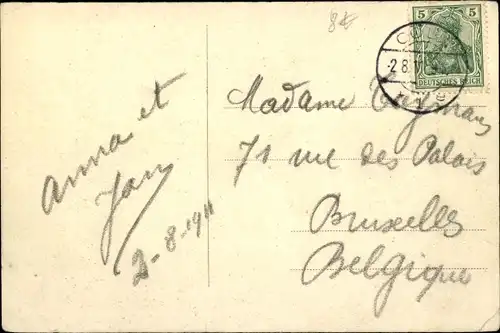 8€
5 5
DEUTSCHES REICH
2 8
Anna et
Jan
2-8-1911
Madame
71 rue des Palais
Bruxelles
Belgique